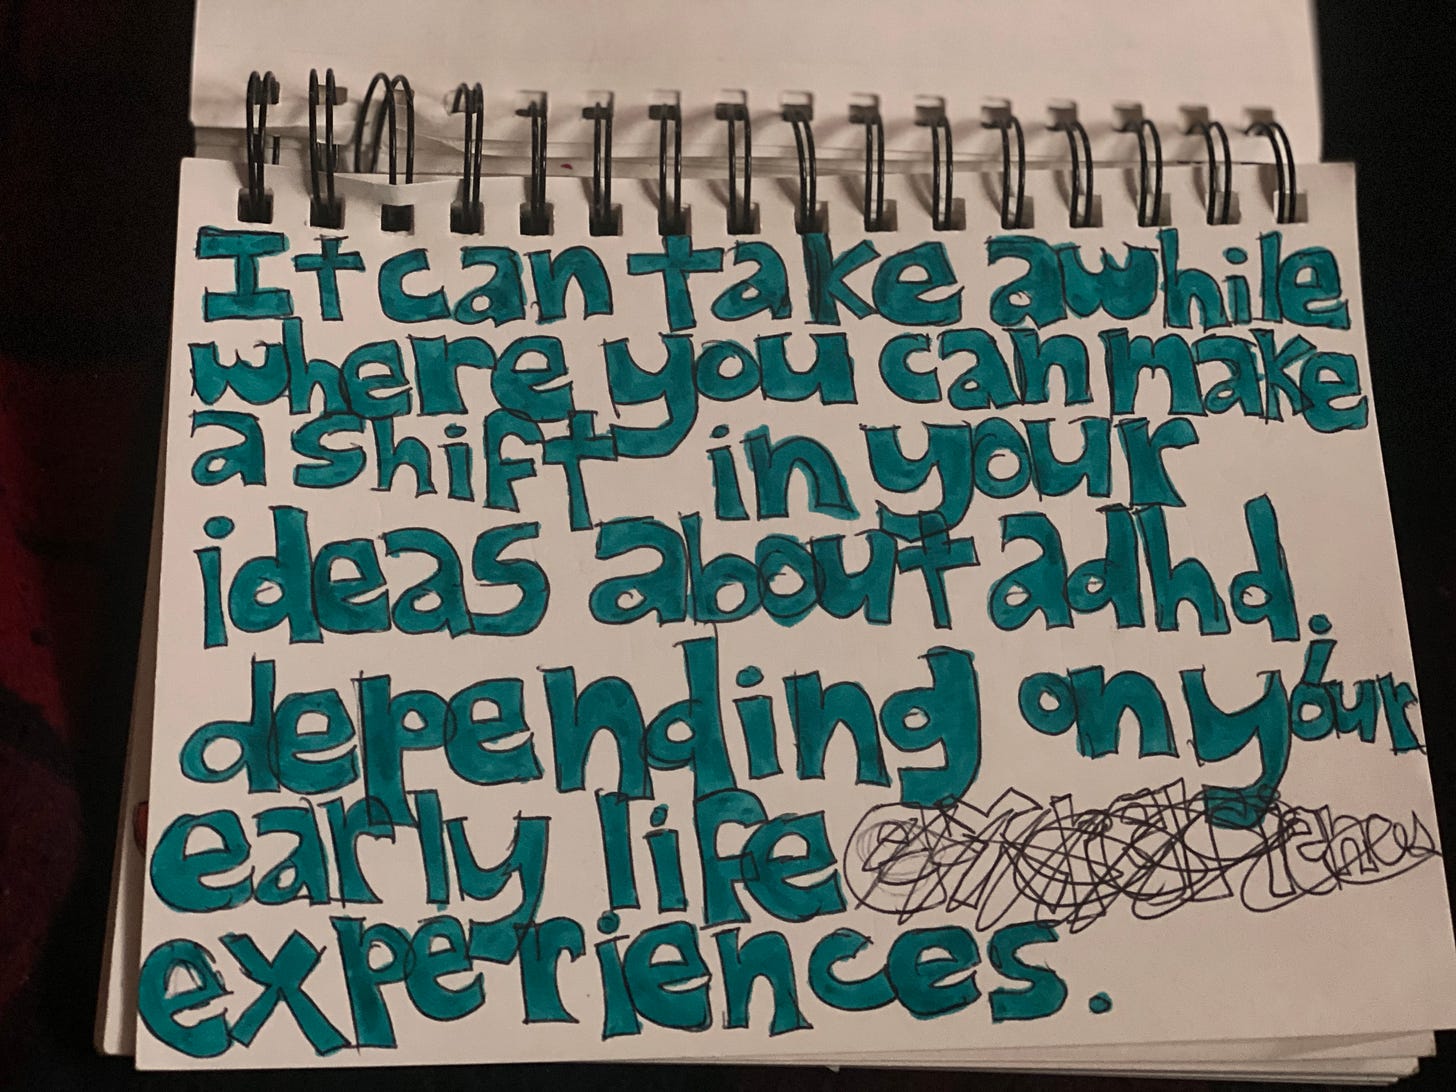 It can take awhile
where you can make
a shift in your
ideas about adhd.
depending on your
early life
experiences.